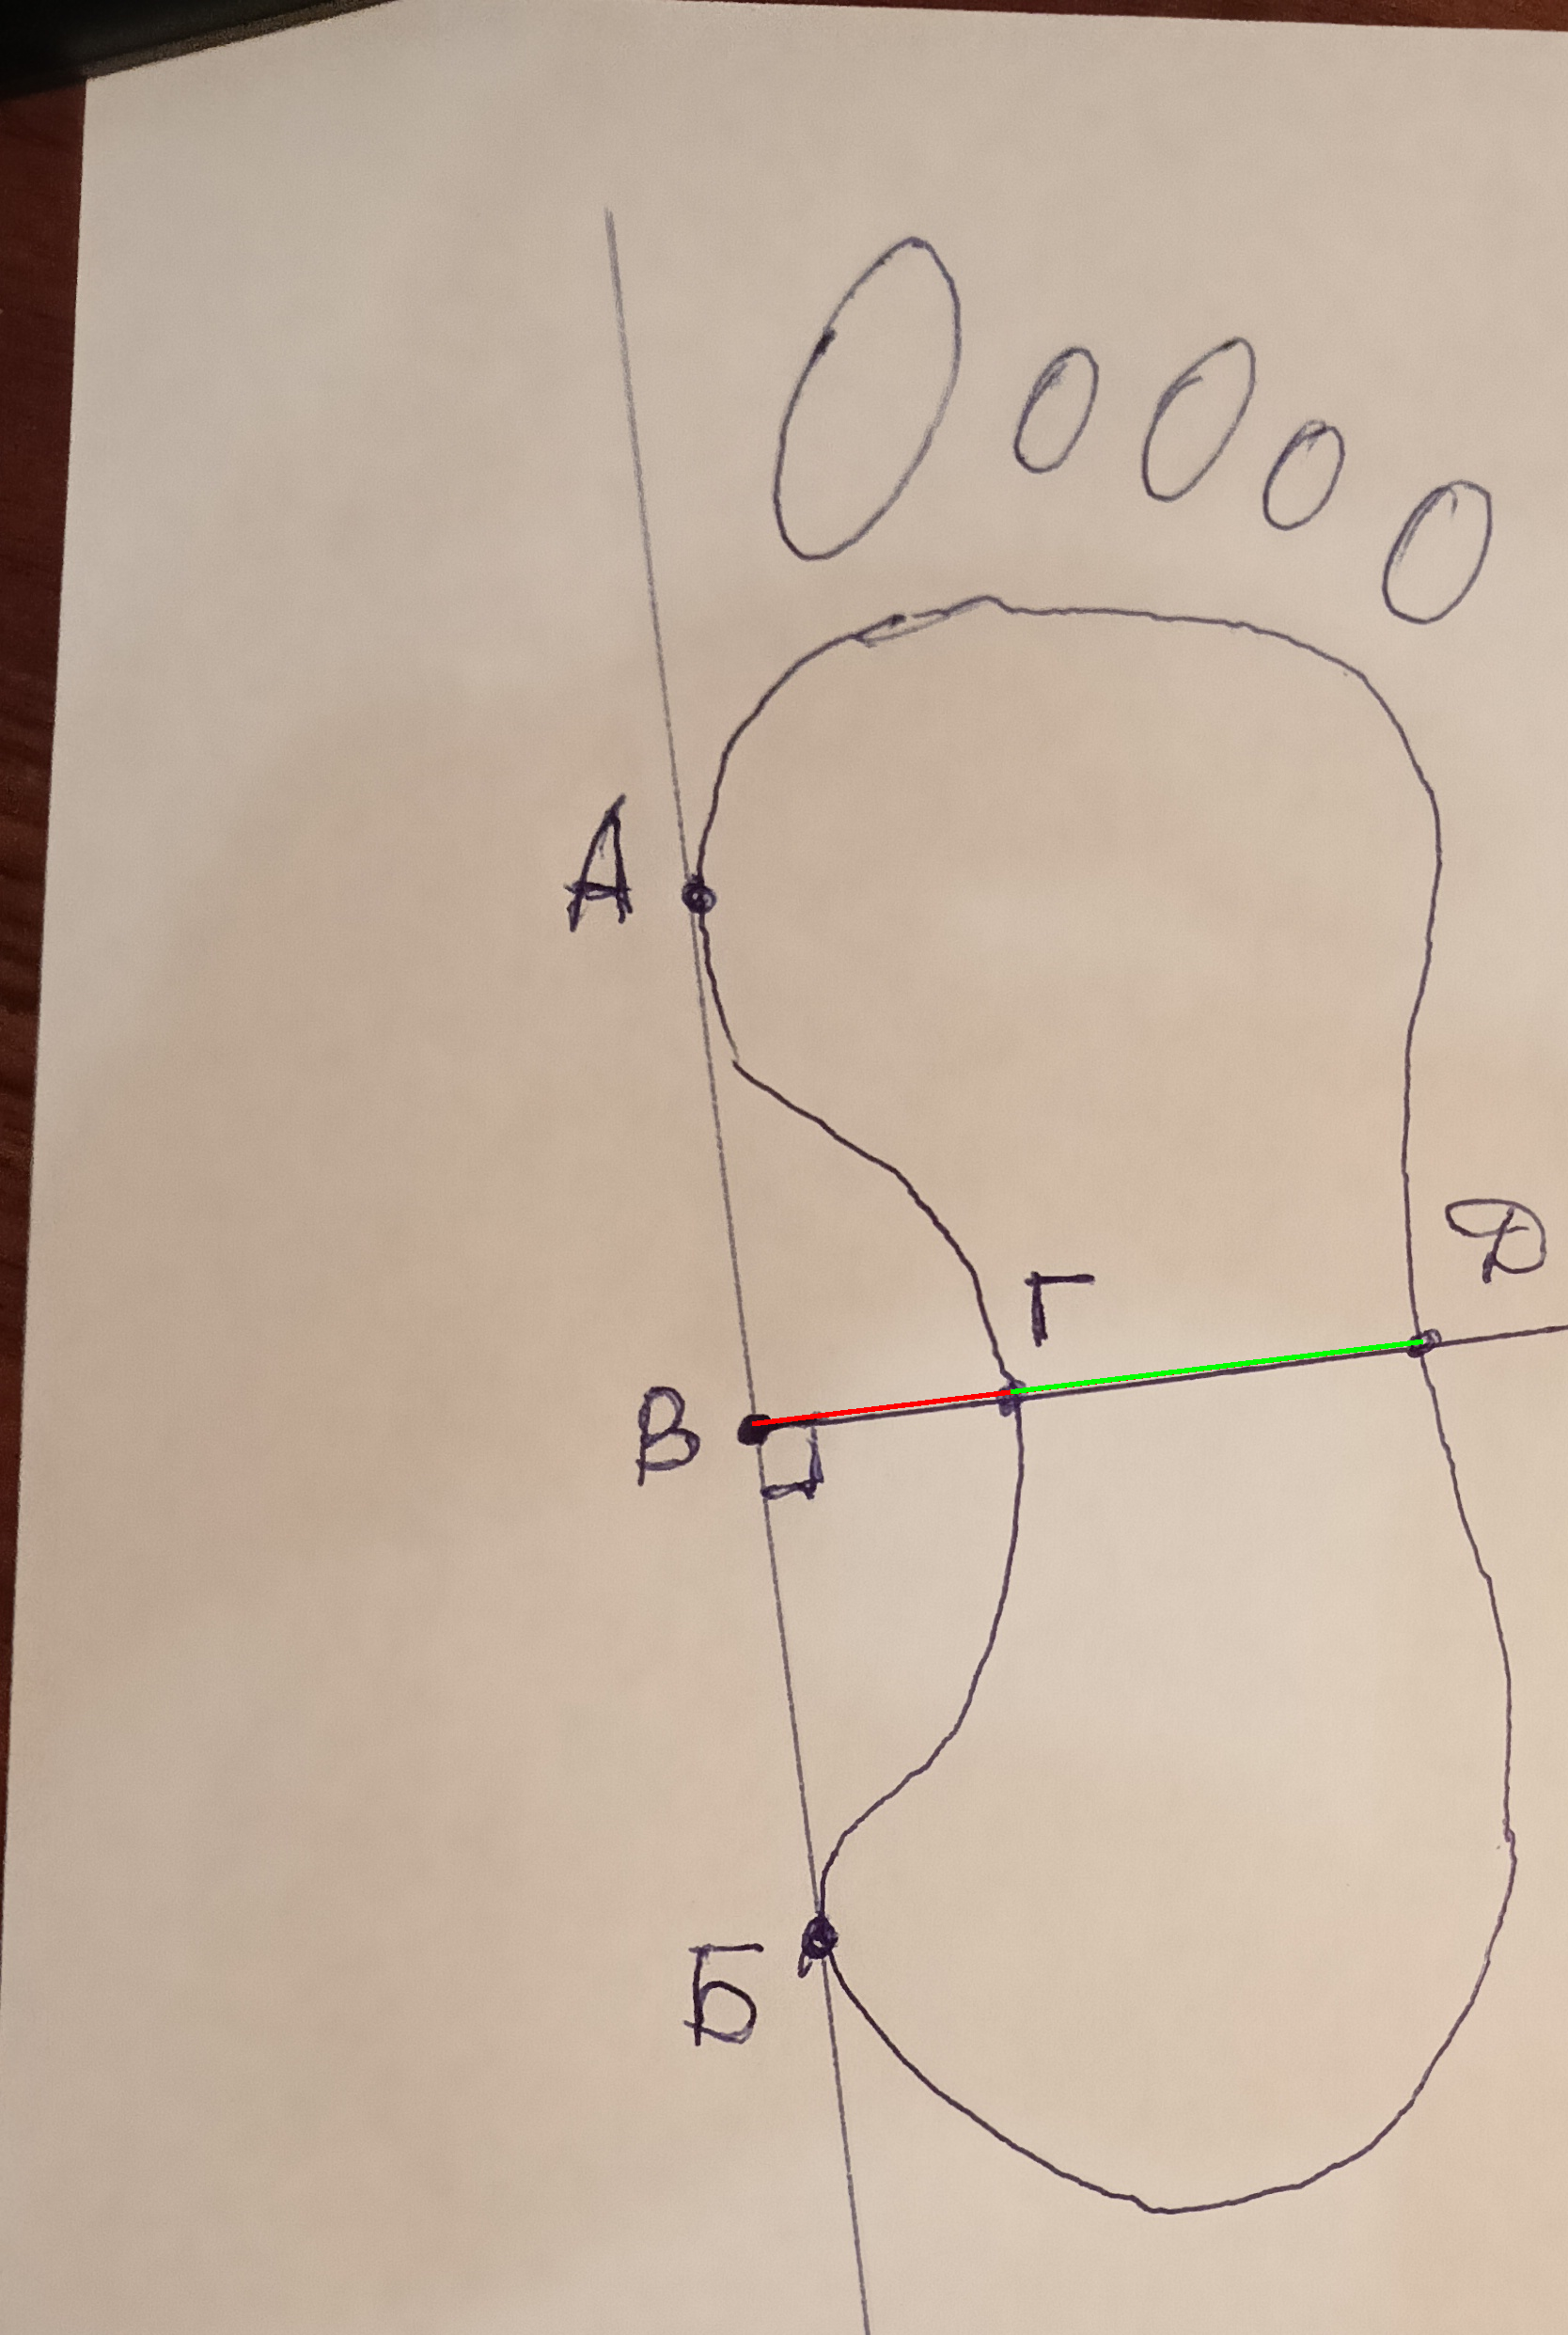 А
Д
Г
В
Б